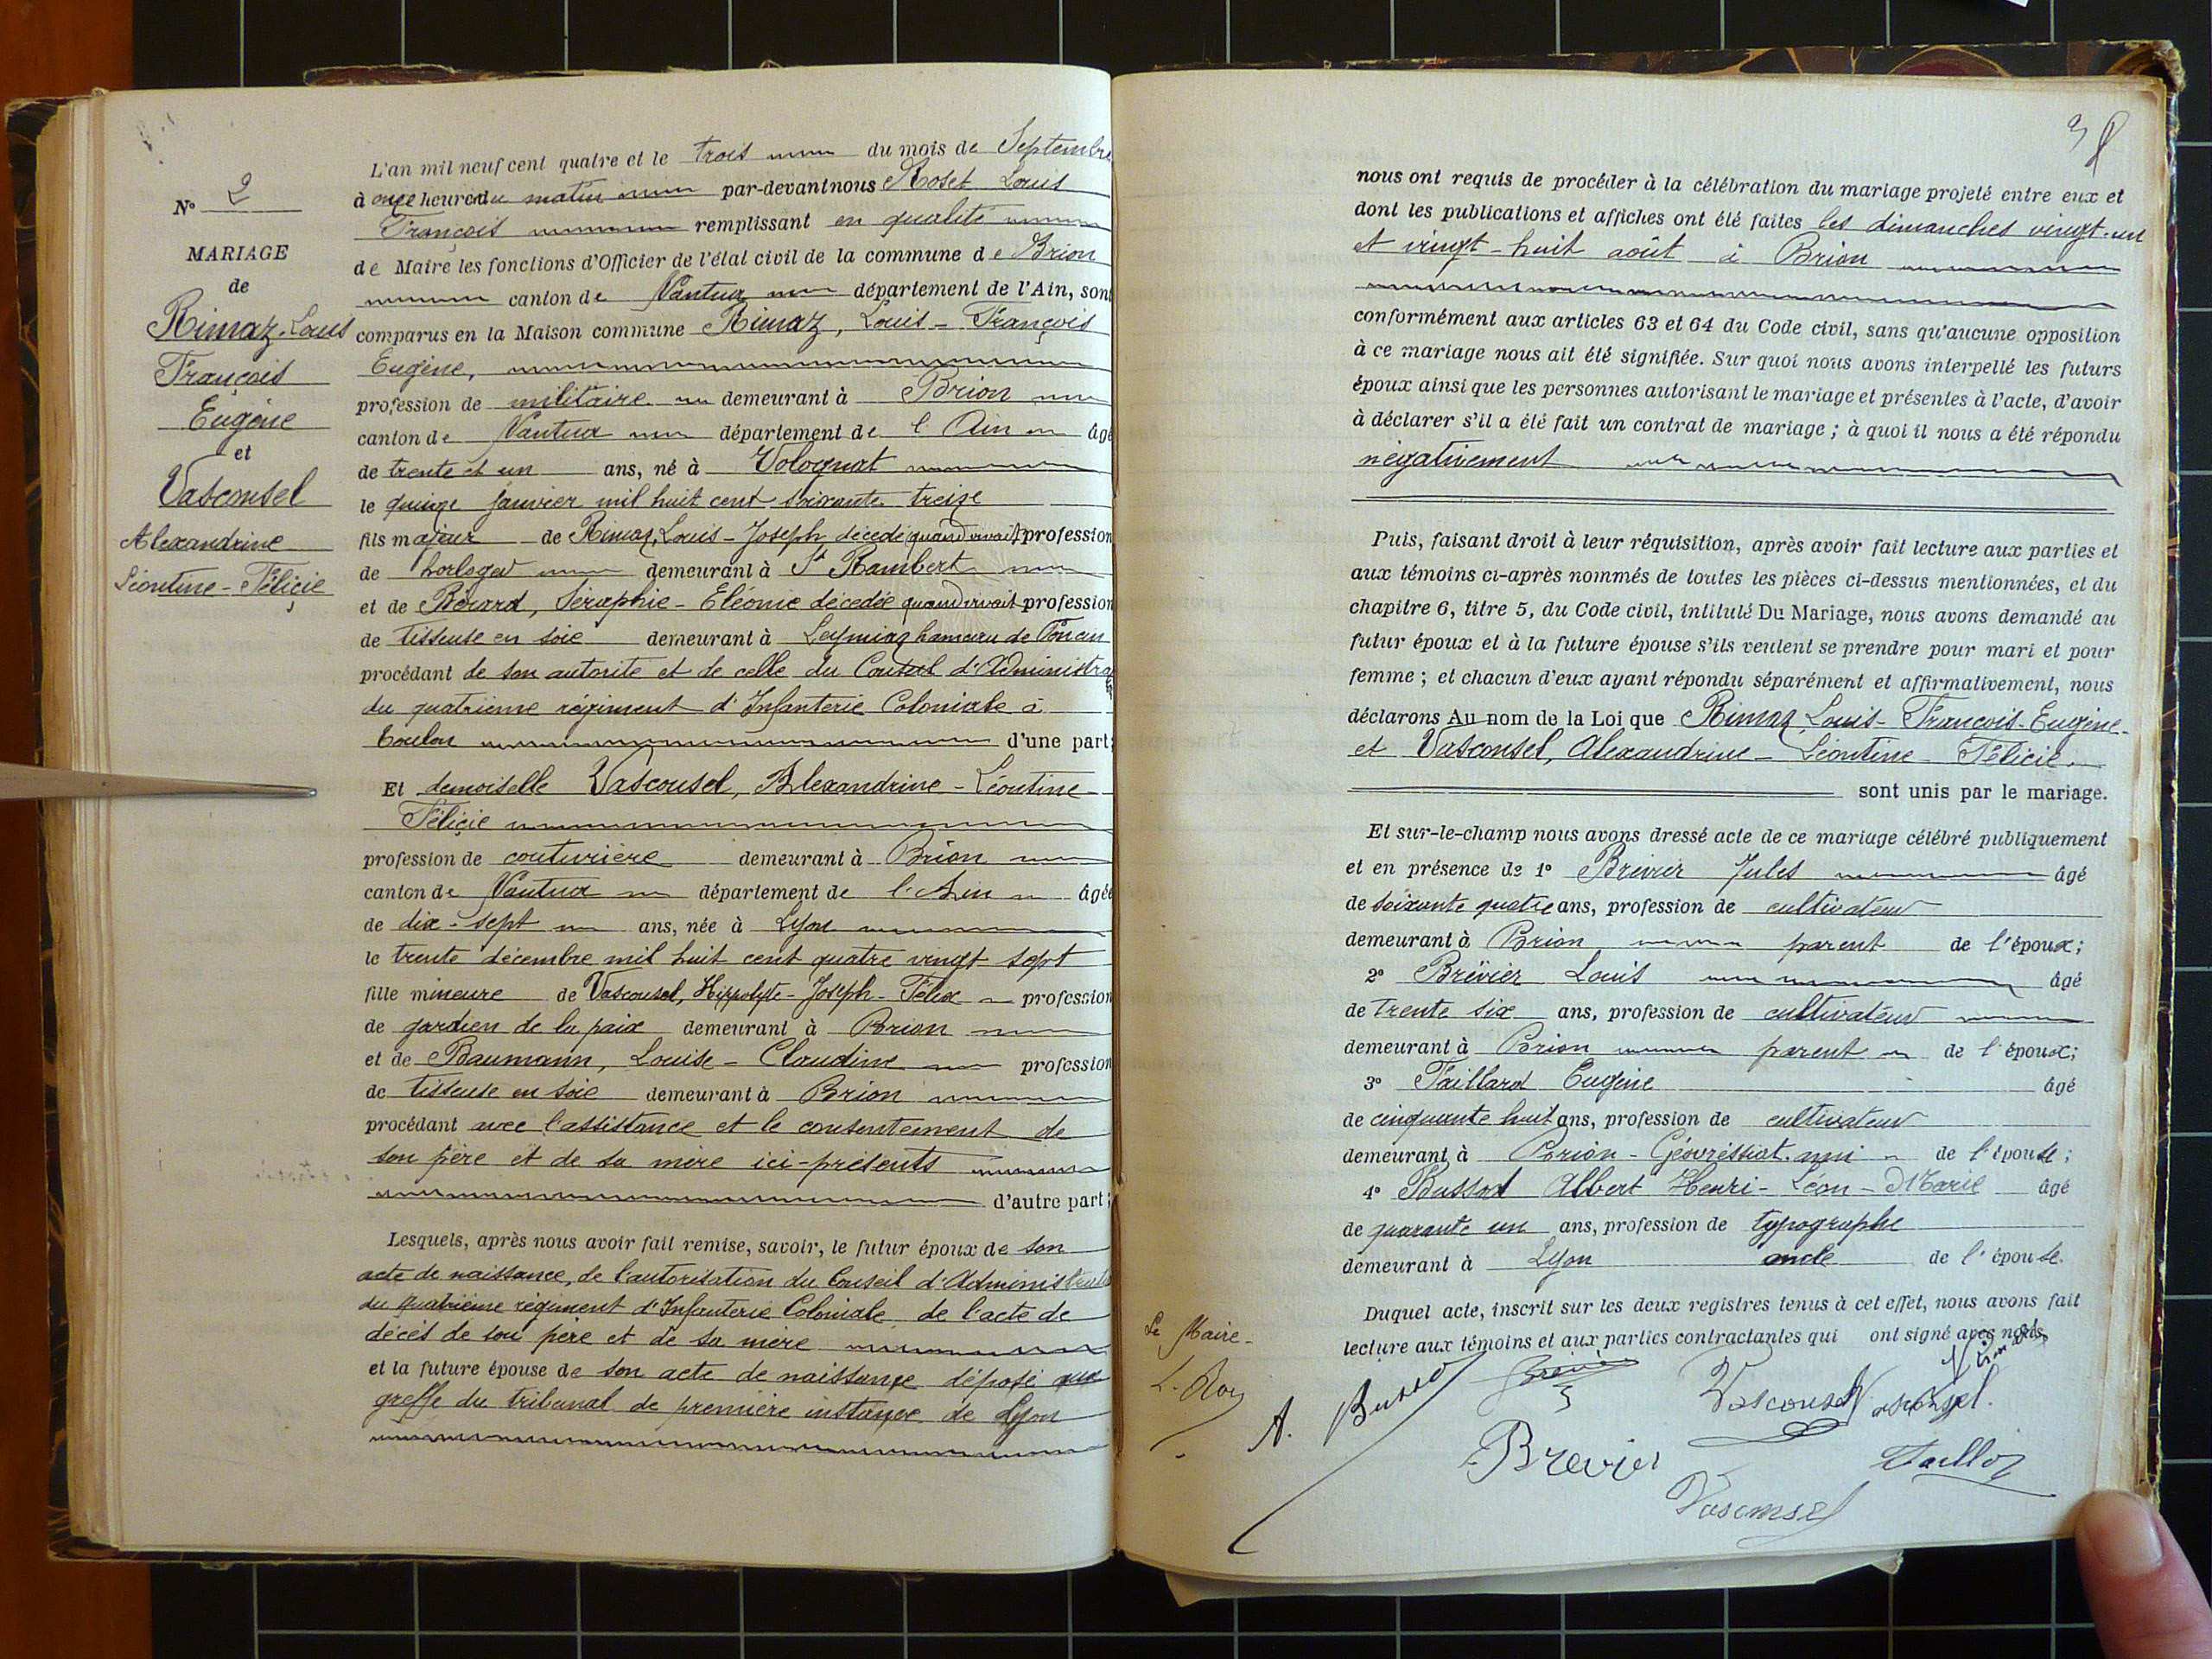 N° 2
MARIAGE
de
Rimaz Louis
François
Eugène
et
Vasconsel
Alexandrine
Léontine - Félicie
L'an mil neuf cent quatre et le trois du mois de Septembre
à onze heures du matin par-devant nous Roset Louis
François remplissant en qualité
de Maire les fonctions d'Officier de l'état civil de la commune de Brion
canton de Nantua département de l'Ain, sont
comparus en la Maison commune Rimaz, Louis - François
Eugène,
profession de militaire demeurant à Brion
canton de Nantua département de l'Ain âgé
de trente et un ans, né à Volognat
le quinze janvier mil huit cent soixante treize
fils majeur de Rimaz, Louis - Joseph décédé quand vivait profession
de horloger demeurant à St Rambert
et de Bérard, Séraphie - Eléonie décédée quand vivait profession
de tisseuse en soie demeurant à Leymiaz hameau de
procédant de son autorité et de celle du Conseil d'Administra
du quatrième régiment d'Infanterie Coloniale à
Toulon d'une part;
Et demoiselle Vasconsel, Alexandrine - Léontine
Félicie
profession de couturière demeurant à Brion
canton de Nantua département de l'Ain âgée
de dix-sept ans, née à Lyon
le trente décembre mil huit cent quatre vingt sept
fille mineure de Vasconsel, Hippolyte - Joseph - Félix profession
de gardien de la paix demeurant à Brion
et de Baumann, Louise - Claudine profession
de tisseuse en soie demeurant à Brion
procédant avec l'assistance et le consentement de
son père et de sa mère ici-présents
d'autre part;
Lesquels, après nous avoir fait remise, savoir, le futur époux de son
acte de naissance, de l'autorisation du Conseil d'Administration
du quatrième régiment d'Infanterie Coloniale de l'acte de
décès de son père et de sa mère
et la future épouse de son acte de naissance déposé aux
greffe du tribunal de première instance de Lyon
38
nous ont requis de procéder à la célébration du mariage projeté entre eux et
dont les publications et affiches ont été faites les dimanches vingt-un
et vingt-huit août à Brion
conformément aux articles 63 et 64 du Code civil, sans qu'aucune opposition
à ce mariage nous ait été signifiée. Sur quoi nous avons interpellé les futurs
époux ainsi que les personnes autorisant le mariage et présentes à l'acte, d'avoir
à déclarer s'il a été fait un contrat de mariage ; à quoi il nous a été répondu
négativement
Puis, faisant droit à leur réquisition, après avoir fait lecture aux parties et
aux témoins ci-après nommés de toutes les pièces ci-dessus mentionnées, et du
chapitre 6, titre 5, du Code civil, intitulé Du Mariage, nous avons demandé au
futur époux et à la future épouse s'ils veulent se prendre pour mari et pour
femme ; et chacun d'eux ayant répondu séparément et affirmativement, nous
déclarons Au nom de la Loi que Rimaz Louis - François - Eugène
et Vasconsel, Alexandrine - Léontine - Félicie
sont unis par le mariage.
Et sur-le-champ nous avons dressé acte de ce mariage célébré publiquement
et en présence de 1° Brevier Jules âgé
de soixante quatre ans, profession de cultivateur
demeurant à Brion parent de l'époux;
2° Brevier Louis âgé
de trente six ans, profession de cultivateur
demeurant à Brion parent de l'époux;
3° Taillard Eugène âgé
de cinquante huit ans, profession de cultivateur
demeurant à Brion - Géovreissiat ami de l'épouse;
4° Bussod Albert Henri - Léon - Marie âgé
de quarante un ans, profession de typographe
demeurant à Lyon oncle de l'épouse.
Duquel acte, inscrit sur les deux registres tenus à cet effet, nous avons fait
lecture aux témoins et aux parties contractantes qui ont signé avec nous.
Le Maire
A. Bussod
Vasconsel
Vasconsel
Rimaz
Brevier
Vasconsel